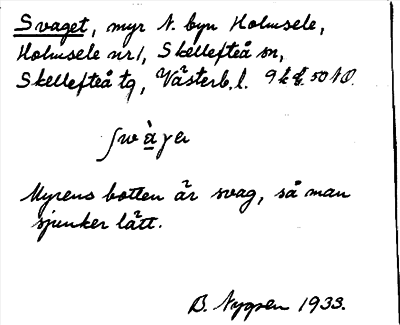 Svaget, myr N. byn Holmsele,
Holmsele nr 1, Skellefteå sn,
Skellefteå tg, Västerb. l. 9 k f. 50 NO.
ʃwàɣer
Myrens botten är svag, så man
sjunker lätt.
B. Nygren 1933.